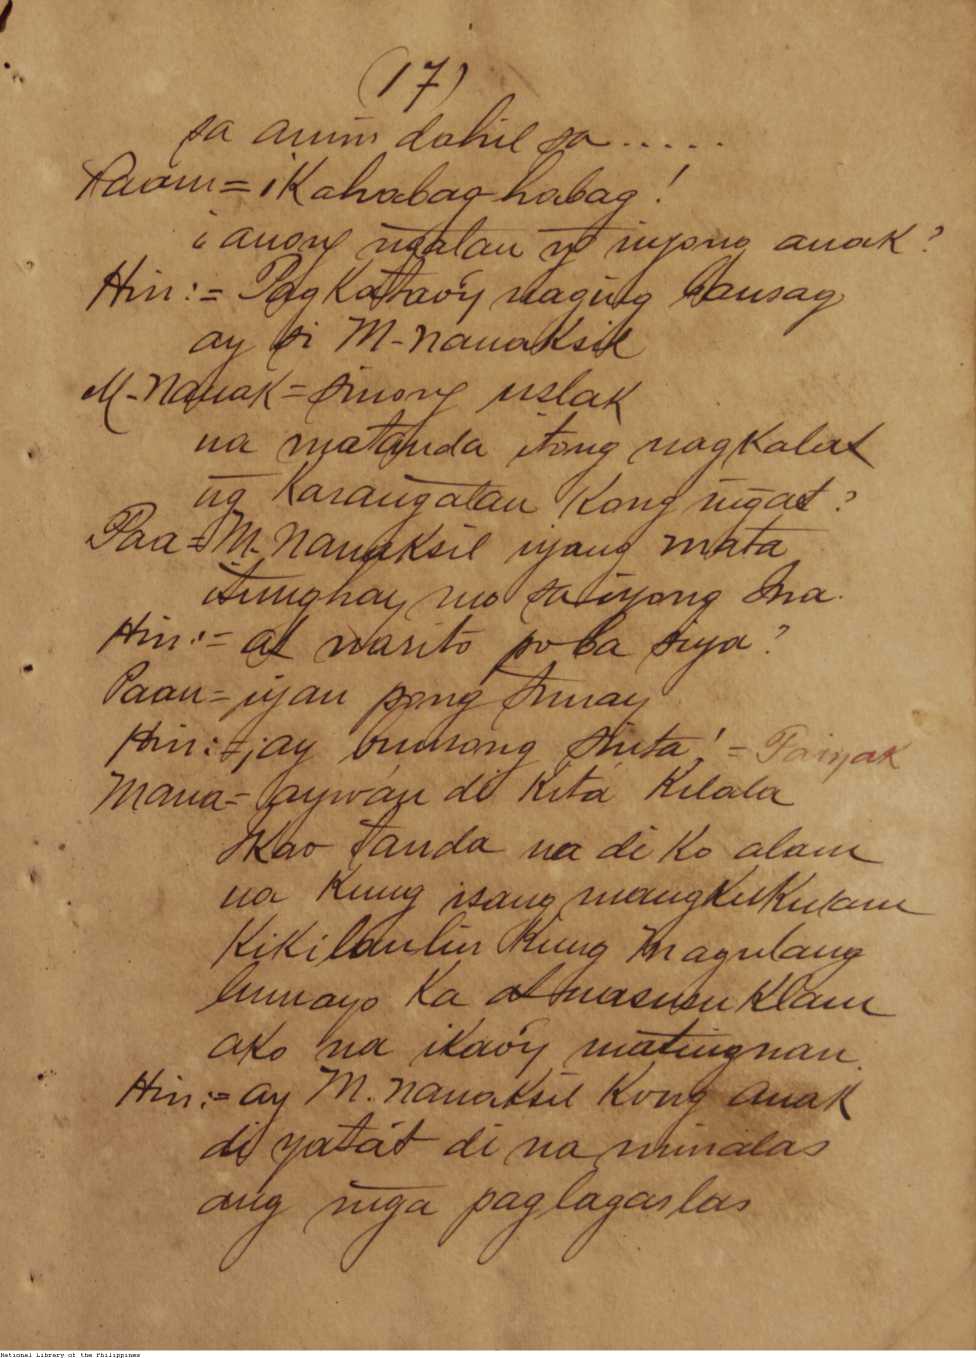 (17)
sa amin dahil sa .....
Paam = ¡Kahabag-habag!
¿anong ngalan ng inyong anak?
Hin:= Pagkatao'y naging bansag
ay si M-Nanaksil
M-Nanak = sinong uslak
na matanda itong nagkalat
ng karangatan kong ingat?
Paa = M-Nanaksil iyang mata
itunghay mo sa iyong Ina.
Hin:= at narito po ba siya?
Paan = iyan pong
Hin:= ¡ay bunsong sinta! = Paiyak
Mana = aywán di kitá kilala
Ikao tanda na di ko alam
na kung isang mangkukulam
kikilanlin kung magulang
lumayo ka at nasusuklam
ako na ikao'y matingnan.
Hin:= ay M. Nanaksil kong anak
di yatát di na minalas
ang mga paglagaslas
National Library of the Philippines